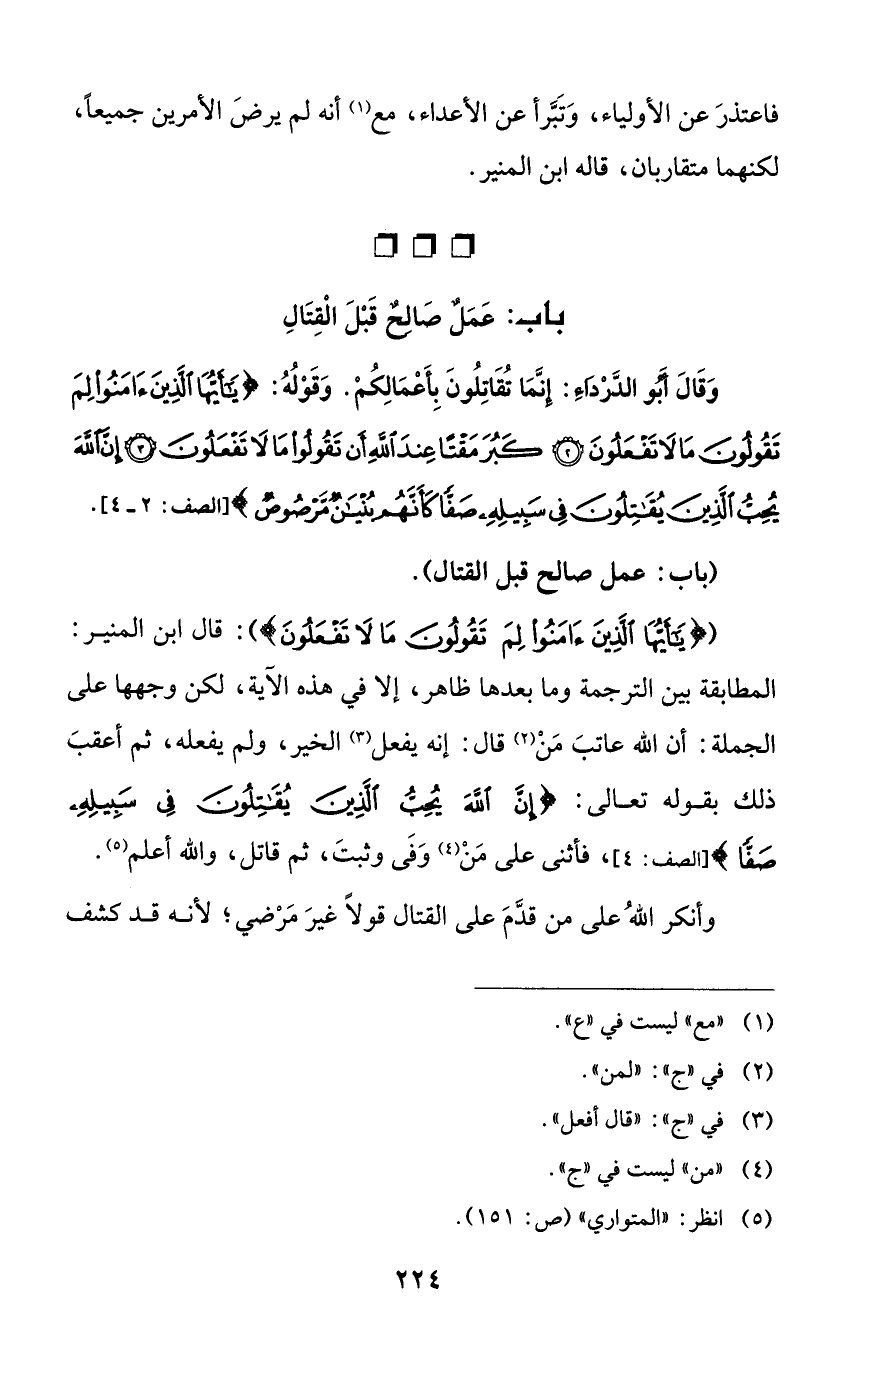 فاعتذرَ عن الأولياء، وَتَبَّرأ عن الأعداء، مع(١) أنه لم يرضَ الأمرين جميعاً،
لكنهما متقاربان، قاله ابن المنير.
باب: عَمَلٌ صَالِحٌ قَبْلَ الْقِتَالِ
وَقَالَ أَبُو الدَّرْدَاءِ: إِنَّمَا تُقَاتِلُونَ بِأَعْمَالِكُمْ. وَقَوْلُهُ: ﴿يَٰٓأَيُّهَا ٱلَّذِينَ ءَامَنُوا۟ لِمَ
تَقُولُونَ مَا لَا تَفْعَلُونَ ۝٢ كَبُرَ مَقْتًا عِندَ ٱللَّهِ أَن تَقُولُوا۟ مَا لَا تَفْعَلُونَ ۝٣ إِنَّ ٱللَّهَ
يُحِبُّ ٱلَّذِينَ يُقَٰتِلُونَ فِى سَبِيلِهِۦ صَفًّا كَأَنَّهُم بُنْيَٰنٌ مَّرْصُوصٌ﴾ [الصف: ٢ ـ ٤].
(باب: عمل صالح قبل القتال).
(﴿يَٰٓأَيُّهَا ٱلَّذِينَ ءَامَنُوا۟ لِمَ تَقُولُونَ مَا لَا تَفْعَلُونَ﴾): قال ابن المنير:
المطابقة بين الترجمة وما بعدها ظاهر، إلا في هذه الآية، لكن وجهها على
الجملة: أن الله عاتبَ مَنْ(٢) قال: إنه يفعل(٣) الخير، ولم يفعله، ثم أعقبَ
ذلك بقوله تعالى: ﴿إِنَّ ٱللَّهَ يُحِبُّ ٱلَّذِينَ يُقَٰتِلُونَ فِى سَبِيلِهِۦ
صَفًّا﴾ [الصف: ٤]، فأثنى على مَنْ(٤) وَفَى وثبتَ، ثم قاتل، والله أعلم(٥).
وأنكر اللهُ على من قدَّمَ على القتال قولاً غيرَ مَرْضي؛ لأنه قد كشف
(١) «مع» ليست في «ع».
(٢) في «ج»: «لمن».
(٣) في «ج»: «قال أفعل».
(٤) «من» ليست في «ج».
(٥) انظر: «المتواري» (ص: ١٥١).
٢٢٤